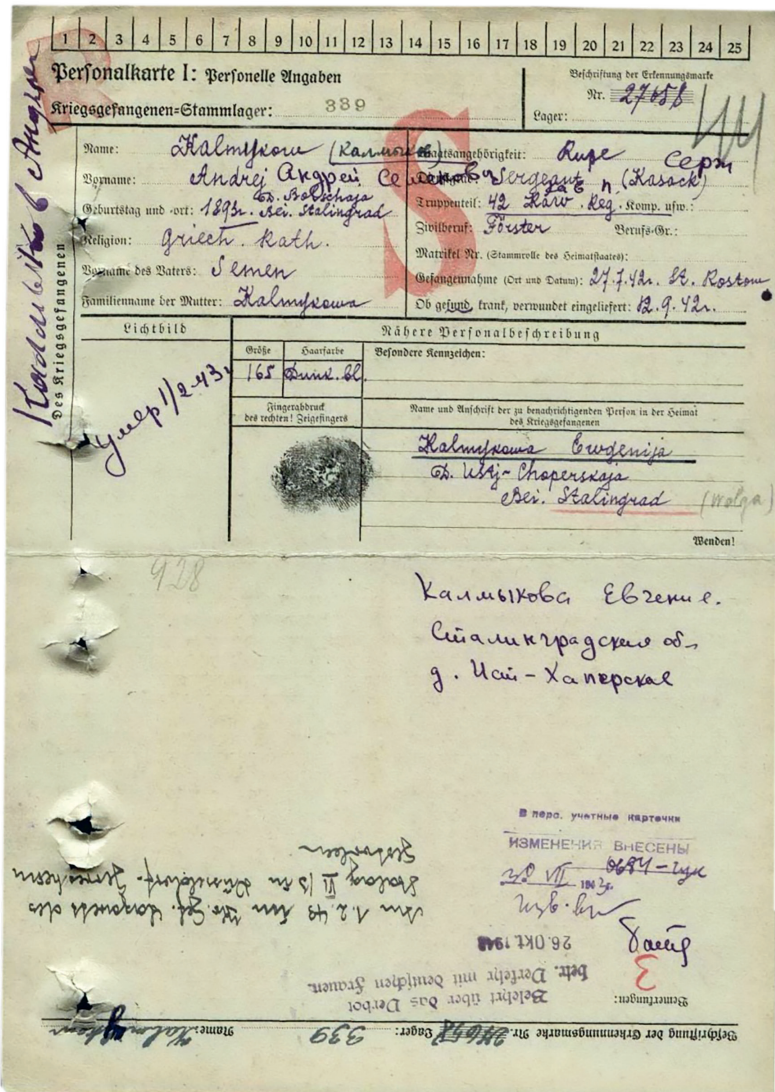 1 2 3 4 5 6 7 8 9 10 11 12 13 14 15 16 17 18 19 20 21 22 23 24 25
Personalkarte I: Personelle Angaben
Kriegsgefangenen=Stammlager: 339
Beschriftung der Erkennungsmarke
Nr. 27658
Lager:
S
Des Kriegsgefangenen
Name: Kalmykow (Калмыков)
Vorname: Andrej Андрей Семенович
Geburtstag und =ort: 1893г. D. Bolschaja
Bei. Stalingrad
Religion: Griech. Kath.
Vorname des Vaters: Semen
Familienname der Mutter: Kalmykowa
Staatsangehörigkeit: Ruße
Серж
Sergeant (Kosack)
Truppenteil: 42 Kaw. Reg. Komp. usw.:
Zivilberuf: Förster Berufs=Gr.:
Matrikel Nr. (Stammrolle des Heimatstaates):
Gefangennahme (Ort und Datum): 27.7.42г. St. Rostow
Ob gesund, krank, verwundet eingeliefert: 12.9.42г.
Lichtbild
умер 1/2-43г
Nähere Personalbeschreibung
Größe Haarfarbe Besondere Kennzeichen:
165 Dunk. bl.
Fingerabdruck
des rechten! Zeigefingers
Name und Anschrift der zu benachrichtigenden Person in der Heimat
des Kriegsgefangenen
Kalmykowa Ewgenija
D. Ustj-Choperskaja
Bei. Stalingrad (Wolga)
Wenden!
928
Калмыкова Евгение.
Сталинградская об-
д. Усть-Хаперская
В перс. учетные карточки
ИЗМЕНЕНИЯ ВНЕСЕНЫ
30 VII
Beschriftung der Erkennungsmarke Nr. 27658 Lager: 339 Name: Kalmykow
Bemerkungen:
3
Belehrt über das Verbot
betr. Verkehr mit deutschen Frauen.
26. OKT. 1942
Am 1.2.43 im Kr. Gef. Lazarett des
Stalag VI/J in Düsseldorf-Gerresheim
gestorben